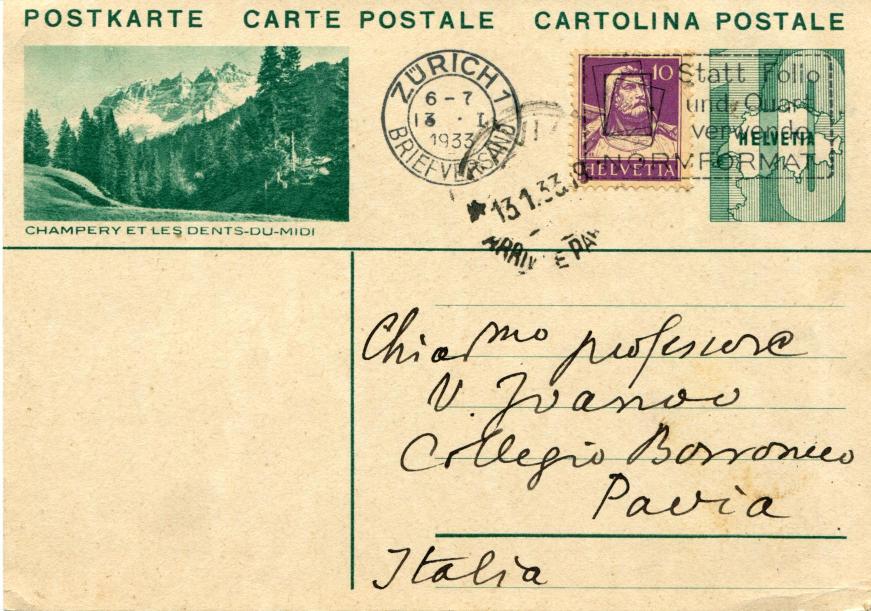 POSTKARTE CARTE POSTALE CARTOLINA POSTALE
CHAMPERY ET LES DENTS-DU-MIDI
ZÜRICH 1
6-7
13. I.
1933
BRIEFVERSAND
13.1.33
10
HELVETIA
Statt Folio
und Quart
verwende
NORMFORMAT
HELVETIA
10
Chiarmo professore
V.
Collegio Borromeo
Pavia
Italia